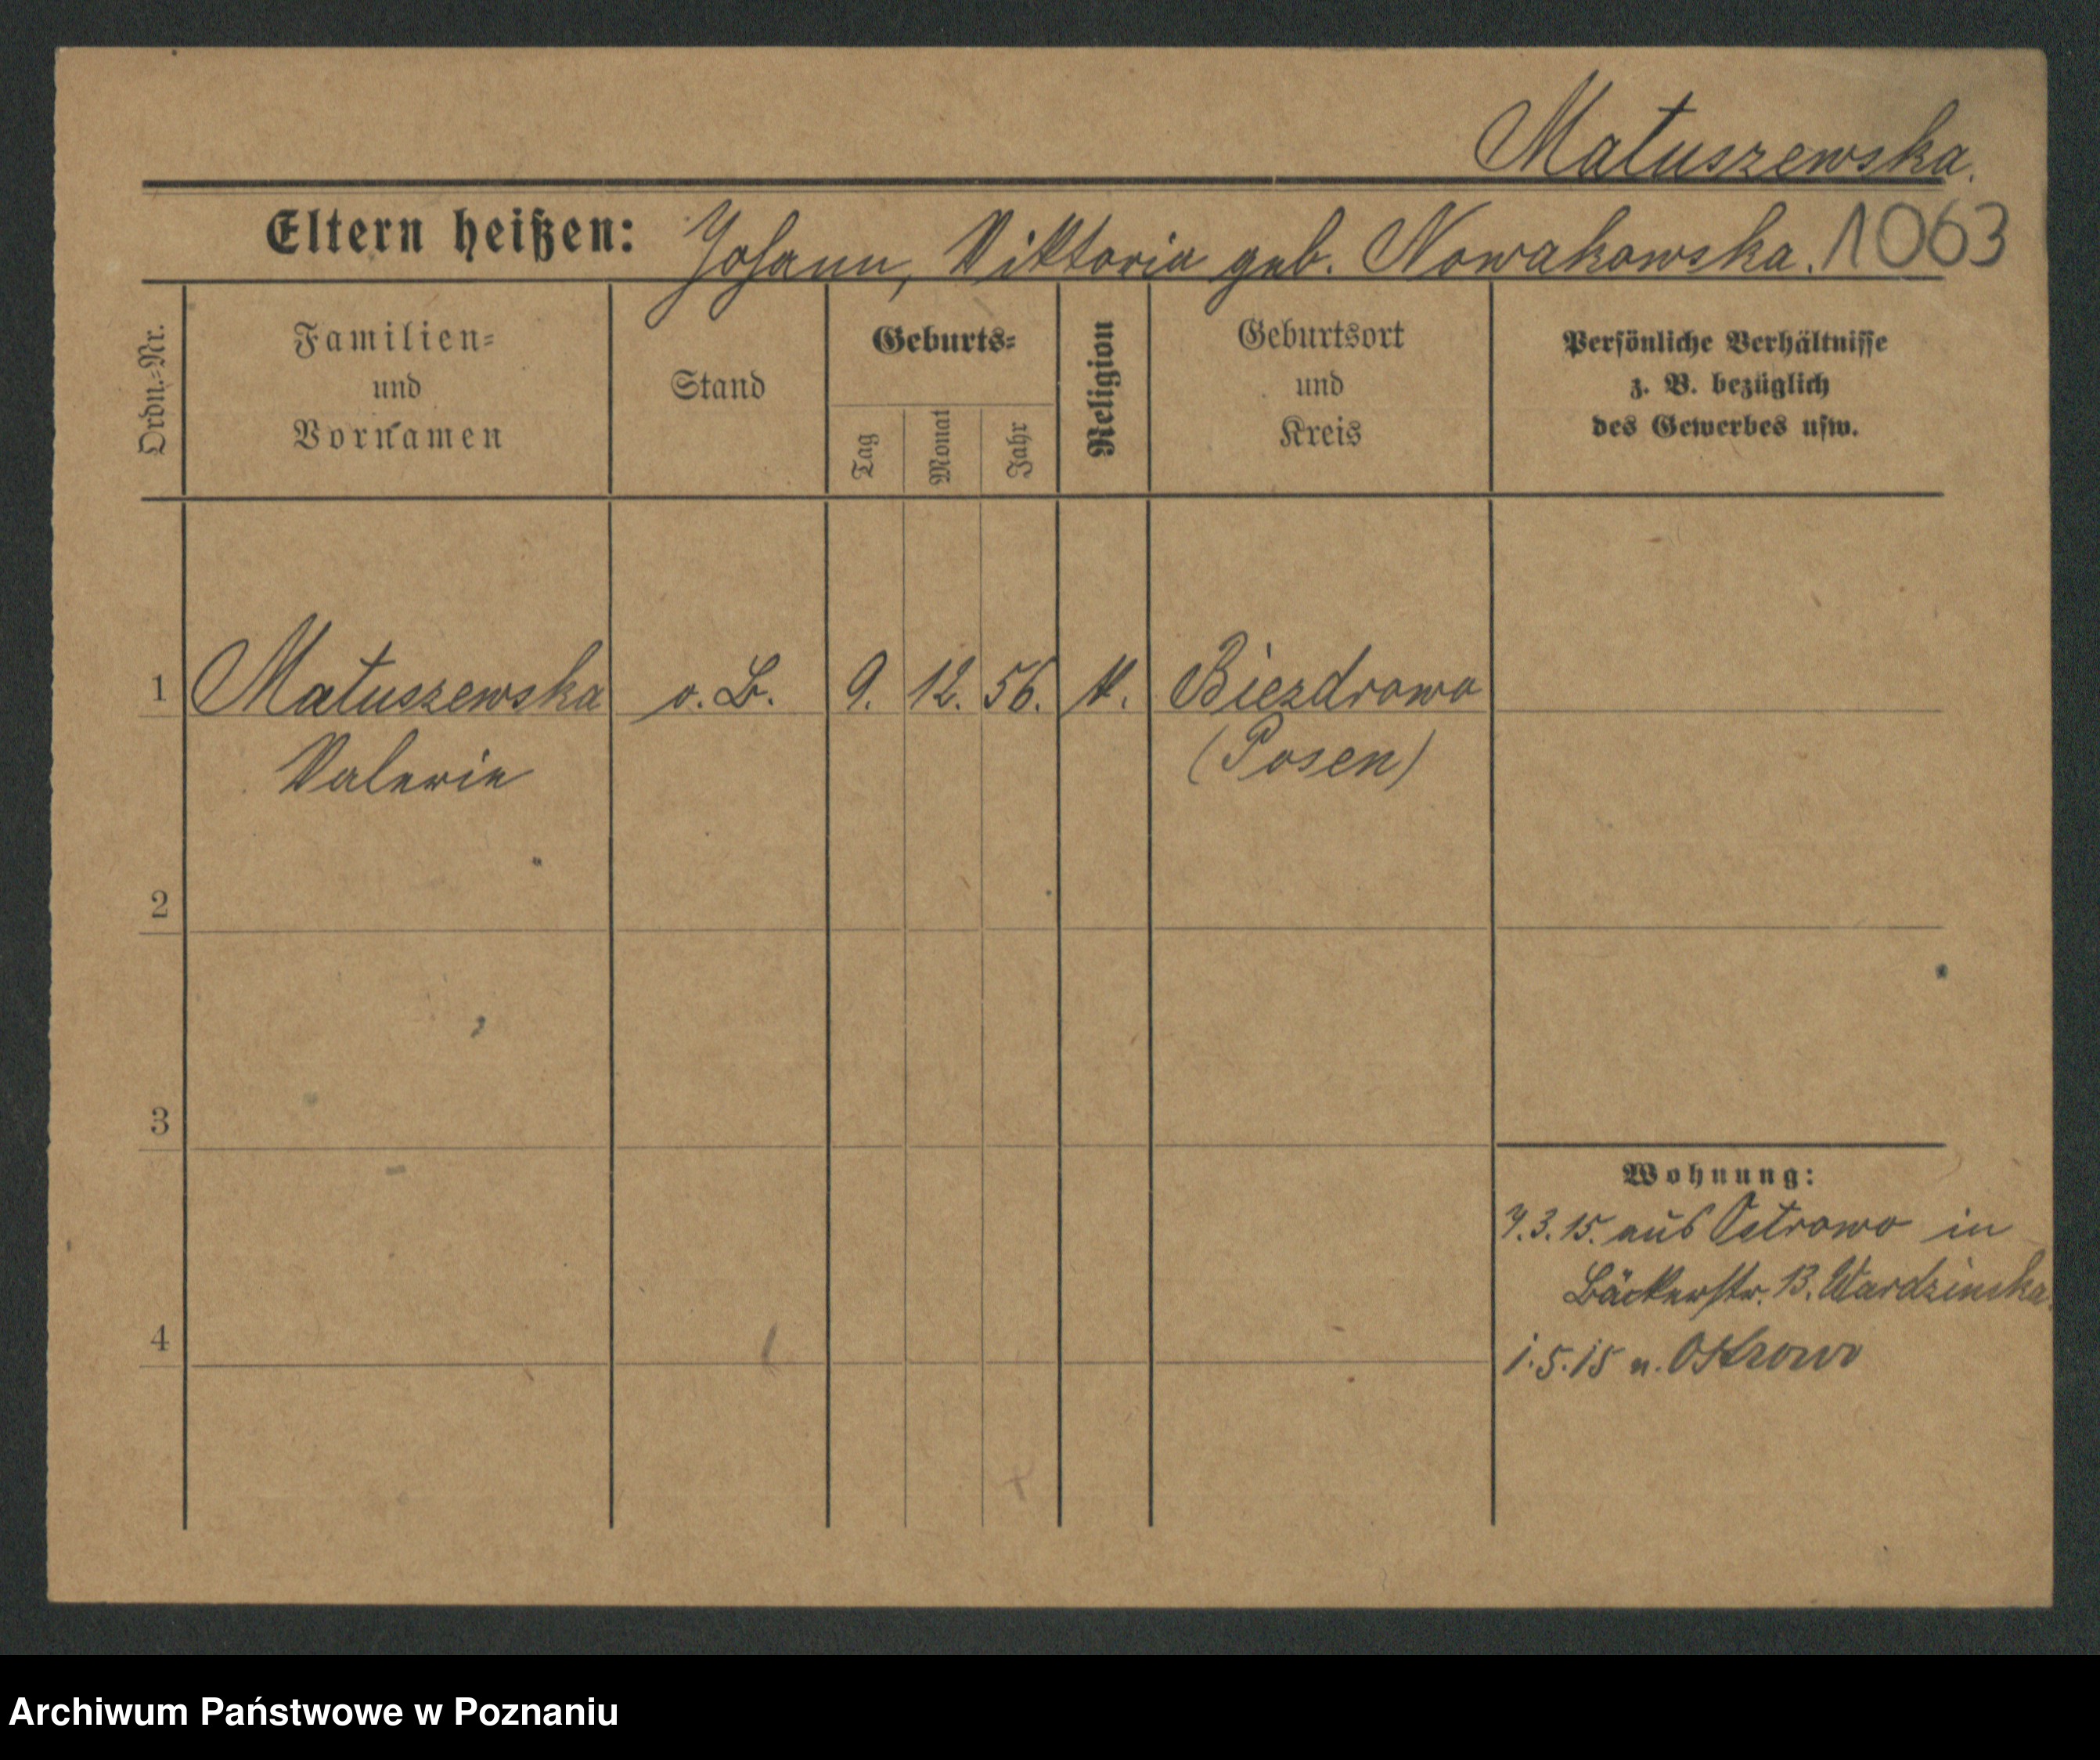 Matuszewska.
Eltern heißen: Johann, Viktoria geb. Nowakowska. 1063
Ordn.=Nr.
Familien=
und
Vornamen
Stand
Geburts=
Tag
Monat
Jahr
Religion
Geburtsort
und
Kreis
Persönliche Verhältnisse
z. B. bezüglich
des Gewerbes usw.
1 Matuszewska o. B. 9. 12. 56. k. Biezdrowo
Valerie (Posen)
2
3
Wohnung:
7.3.15. aus Ostrowo in
Bäckerstr. 13. Wardzinska.
4
1.5.15 n. Ostrowo
Archiwum Państwowe w Poznaniu